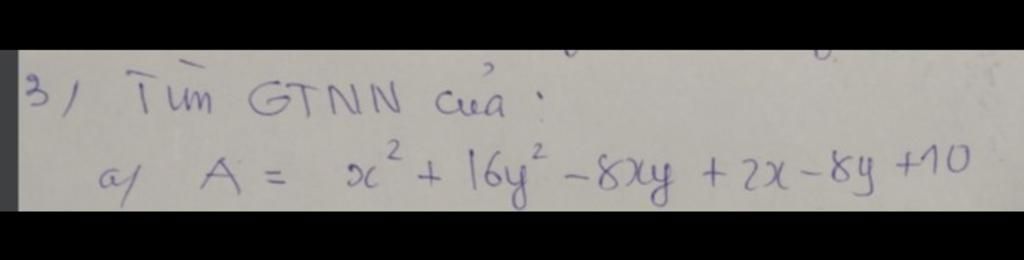 3) Tìm GTNN của :
a) A = x² + 16y² - 8xy + 2x - 8y + 10